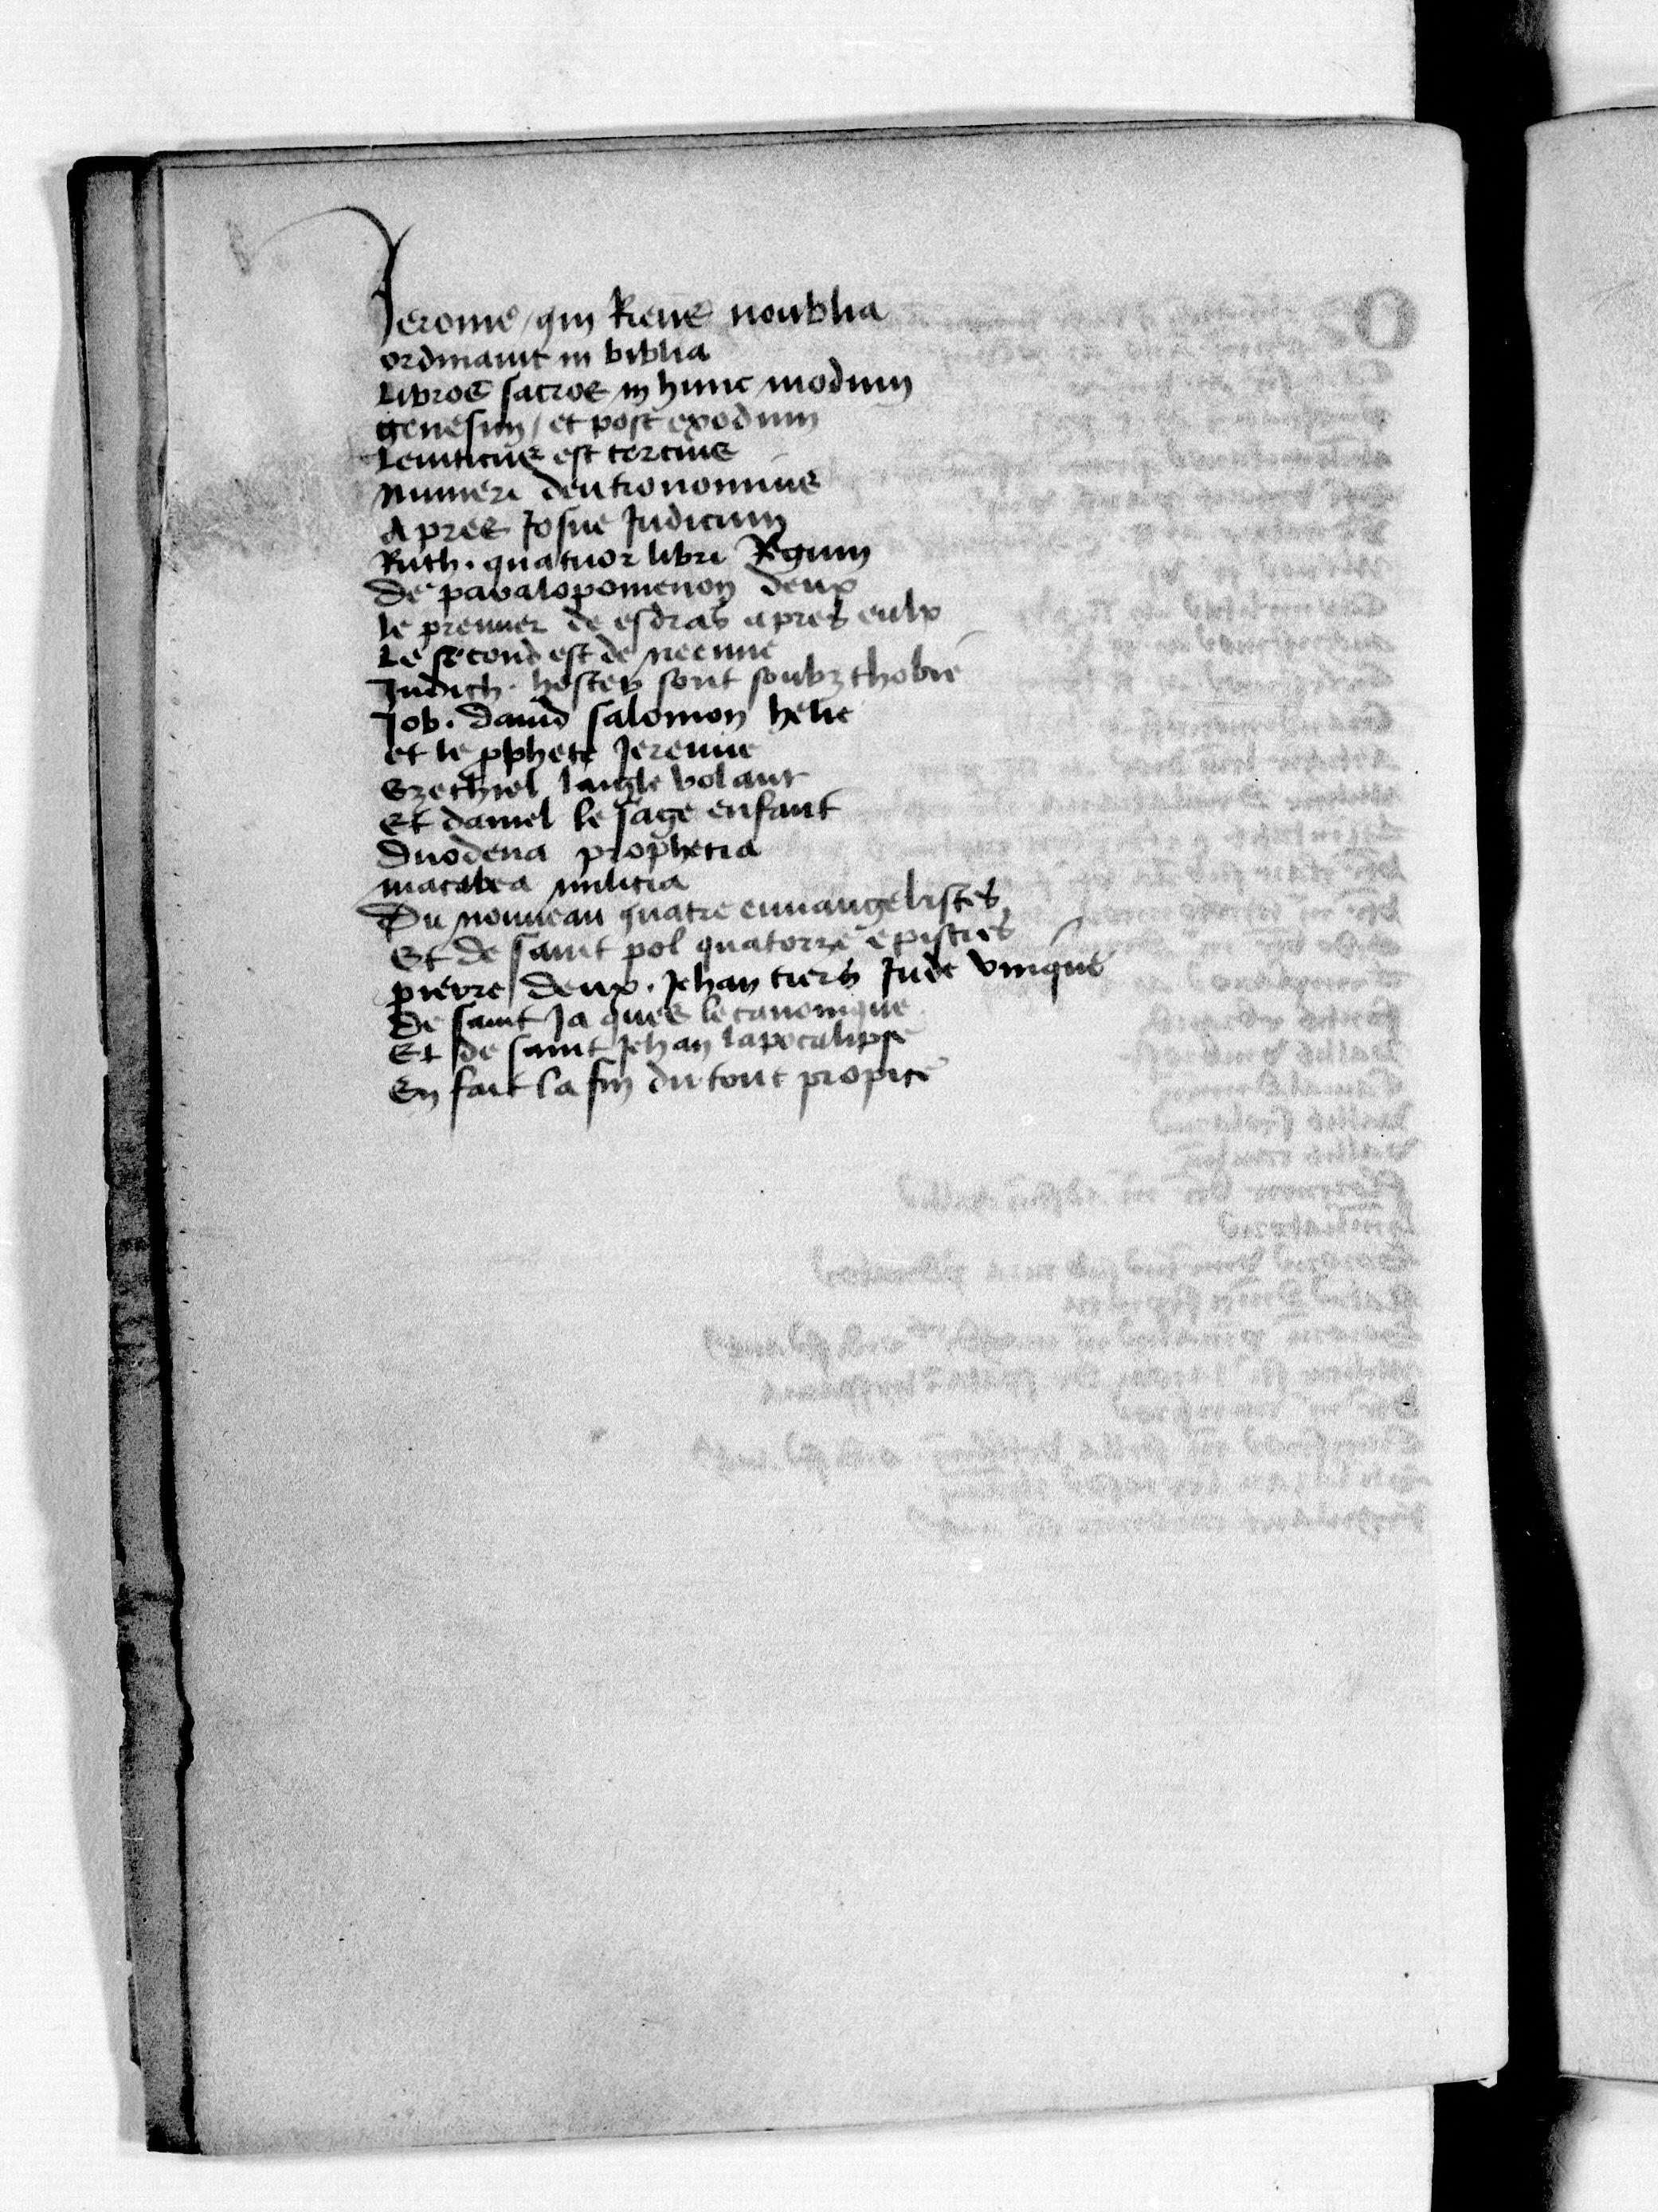 Jerome / qui Riens noublia
ordinauit in biblia
Libros sacros in hunc modum
genesim / et post exodum
Leuiticus est tercius
Numeri deutronomius
Apres Josue Judicum
Ruth . quatuor libri Regum
De paralopomenon deux
le premier de esdras apres eulx
Le second est de neemie
Judich . hester sont soubz thobie
Job . dauid salomon helie
et le pphete Jeremie
Ezechiel laigle volant
Et daniel le sage enfant
Duodena prophetia
macabea militia
Du nouueau quatre euuangelistes
Et de saint pol quatorze epistres
pierre deux . Jehan tiers Jude vnique
De saint Jaques le canonique
Et de saint Jehan lapocalipse
En fait la fin du tout propice